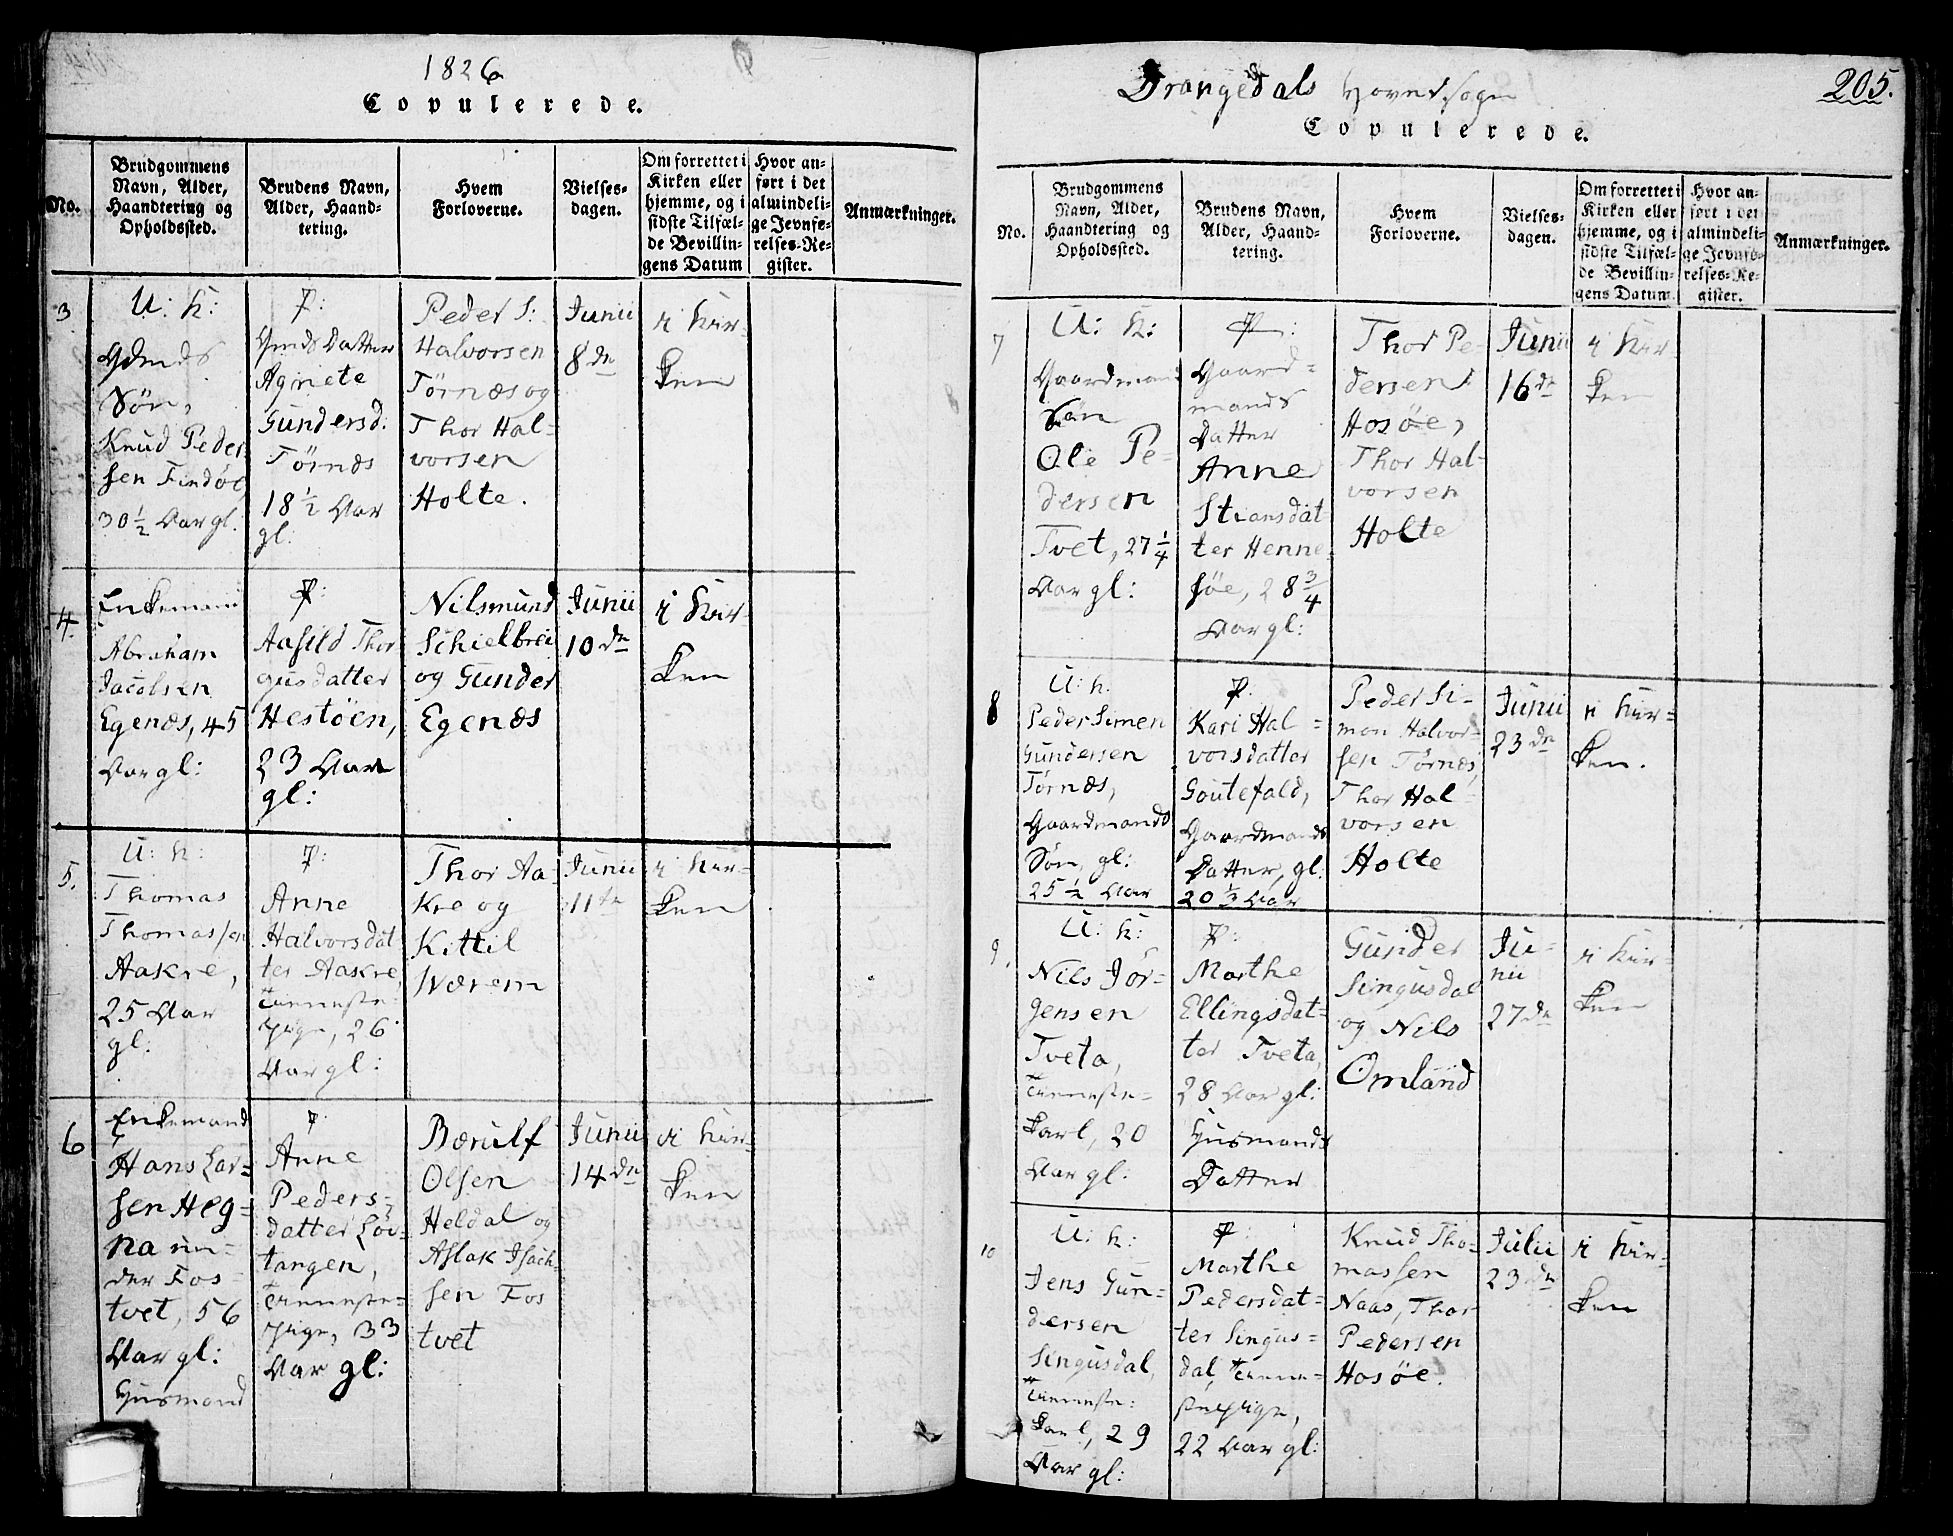 1826
Copulerede.
No.
Brudgommens
Navn, Alder,
Haandtering og
Opholdssted.
Brudens Navn,
Alder, Haand-
tering.
Hvem
Forloverne.
Vielses-
dagen.
Om forrettet i
Kirken eller
hjemme, og i
sidste Tilfæl-
de Bevillin-
gens Datum
Hvor an-
ført i det
almindeli-
ge Jevnfø-
relses-Re-
gister.
Anmærkninger.
3
U: K:
Søn,
Knud Peder
sen Findøe
30 1/2 Aar gl.
P:
Datter
Agnete
Gundersd:
Törnæs
18 1/2 Aar
gl:
Peder S:
Halvorsen
Törnæs og
Thor Hal-
vorsen
Holte.
Junii
8de
i Kir-
ken
4.
Enkemand
Abraham
Jacobsen
Egenæs, 45
Aar gl:
P:
Aasild Thor
gusdatter
Hestöen,
23 Aar
gl:
Nilsmund
Schielbrei
og Gunder
Egenæs
Junii
10de
i Kir-
ken
5.
U: K:
Thomas
Thomassen
Aakre,
25 Aar
gl:
P:
Anne
Halvorsdat
ter Aakre,
Tienneste-
Pige, 26
Aar gl:
Thor Aa-
kre og
Kittil
Werem
Junii
11te
i Kir-
ken
6
Enkemand
Hans Lar=
sen Heg=
na un=
der Fos=
tvet, 56
Aar gl:
Husmand
P:
Anne
Peders=
datter Lov=
tangen,
Tienneste=
Pige, 33
Aar gl:
Bærulf
Olsen
Heldal og
Aslak Isach=
sen Fos
tvet
Junii
14de
i Kir-
ken
Drangedals Hovedsogn
205.
Copulerede.
No.
Brudgommens
Navn, Alder,
Haandtering og
Opholdssted.
Brudens Navn,
Alder, Haand-
tering.
Hvem
Forloverne.
Vielses-
dagen.
Om forrettet i
Kirken eller
hjemme, og i
sidste Tilfæl-
de Bevillin-
gens Datum.
Hvor an-
ført i det
almindeli-
ge Jevnfø-
relses-Re-
gister.
Anmærkninger.
7
U: K:
Gaardmand
Søn
Ole Pe=
dersen
Tvet, 27 1/4
Aar gl:
P:
Gaard=
mands
Datter
Anne
Stiansdat
ter Henne
söe, 28 3/4
Aar gl:
Thor Pe=
dersen
Hosøe,
Thor Hal=
vorsen
Holte
Junii
16de
i Kir-
ken
8
U: K.
Peder Simen
Gundersen
Törnæs,
Gaardmands
Søn, gl:
25 1/2 Aar
P:
Kari Hal=
vorsdatter
Goutefald,
Gaardmands
Datter, gl:
20 1/2 Aar
Peder Si=
mon Halvor=
sen Törnæs,
Thor Hal=
vorsen
Holte
Junii
23de
i Kir=
ken.
9.
U: K:
Nils Jör=
gensen
Tveta,
Tienneste=
Karl, 20
Aar gl:
P:
Marthe
Ellingsdat=
ter Tveta,
28 Aar gl:
Husmands
Datter
Gunder
Singusdal
og Nils
Omland
Ju=
nii
27de
i Kir=
ken
10
U: K:
Jens Gun=
dersen
Singusdal,
Tienneste:
Karl, 29
Aar gl:
P:
Marthe
Pedersdat=
ter Singus=
dal, Tienne=
stepige,
22 Aar gl:
Knud Tho=
massen
Naas, Thor
Pedersen
Hosöe.
Julii
23de
i Kir=
ken